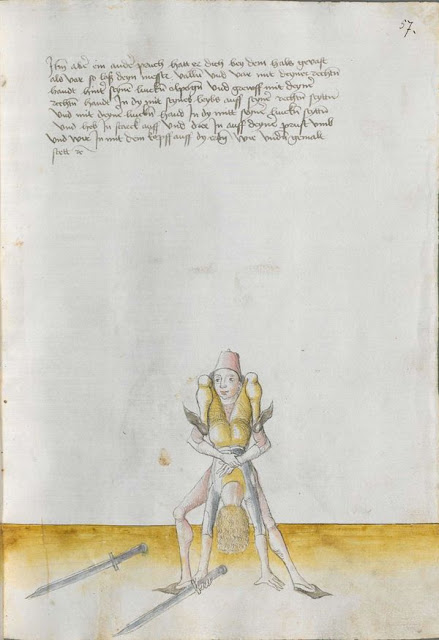 57.
Itm aber ein ander pruch hatt er dich bey dem hals gefast
als vor so laß deyn messer vallen und var mit deyner rechten
handt hintter seyne lincken elpogen und greyff mit deyner
rechten handt In dy mit seynes leybs auff seyner rechten seytten
und mit deyner lincken handt In dy mitt seyner lincken seytten
und heb In starck auff und dree In auff deyne prust umb
und wirff In mit dem kopff auff dy erden wie unden gemalt
stett etc